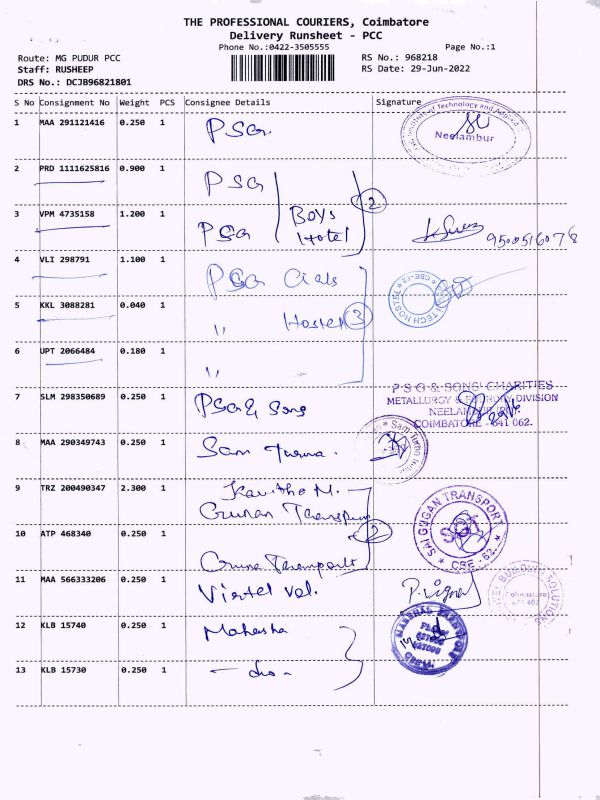 THE PROFESSIONAL COURIERS, Coimbatore
Delivery Runsheet - PCC
Phone No.:0422-3505555
Page No.:1
Route: MG PUDUR PCC
RS No.: 968218
Staff: RUSHEEP
RS Date: 29-Jun-2022
DRS No.: DCJB96821801
S No Consignment No Weight PCS Consignee Details Signature
1 MAA 291121416 0.250 1 PSG
Neelambur
2 PRD 1111625816 0.900 1 PSG
Boys 2
3 VPM 4735158 1.200 1 PSG Hotel
9500516078
4 VLI 298791 1.100 1 PSG
5 KKL 3088281 0.040 1 " Hostel 3
6 UPT 2066484 0.180 1 "
7 SLM 298350689 0.250 1 PSG & Sons
P S G & SONS' CHARITIES
METALLURGY & FOUNDRY DIVISION
COIMBATORE - 641 062.
8 MAA 290349743 0.250 1 Sam Turbo
9 TRZ 200490347 2.300 1
SAI GUGAN TRANSPORT
CBE - 62.
10 ATP 468340 0.250 1
2
11 MAA 566333206 0.250 1
12 KLB 15740 0.250 1
13 KLB 15730 0.250 1 - do -